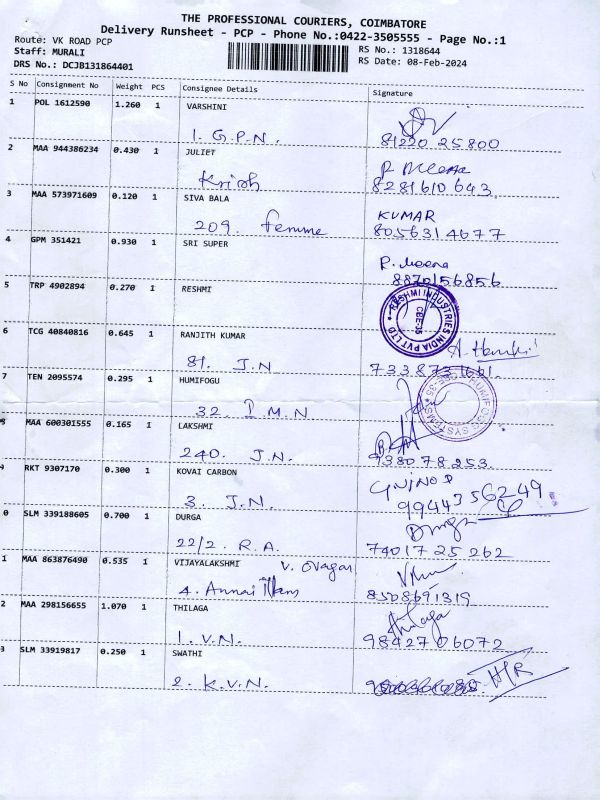 THE PROFESSIONAL COURIERS, COIMBATORE
Delivery Runsheet - PCP - Phone No.:0422-3505555 - Page No.:1
Route: VK ROAD PCP
Staff: MURALI
DRS No.: DCJB131864401
RS No.: 1318644
RS Date: 08-Feb-2024
S No Consignment No Weight PCS Consignee Details Signature
1 POL 1612590 1.260 1 VARSHINI
1. G.P.N. 81220 25800
2 MAA 944386234 0.430 1 JULIET
Krish 8281610643
3 MAA 573971609 0.120 1 SIVA BALA KUMAR
209. Femme 8056314677
4 GPM 351421 0.930 1 SRI SUPER R. Meena
8870156856
5 TRP 4902894 0.270 1 RESHMI
RESHMI INDUSTRIES INDIA PVT LTD
CBE-35
6 TCG 40840816 0.645 1 RANJITH KUMAR
81. J.N 7338731661.
7 TEN 2095574 0.295 1 HUMIFOGU
HUMIFOG SYSTEMS
32. I.M.N
8 MAA 600301555 0.165 1 LAKSHMI
240. J.N. 938078253.
9 RKT 9307170 0.300 1 KOVAI CARBON
3. J.N. 9944356249
0 SLM 339188605 0.700 1 DURGA Durga
22/2. R.A. 7401725262
1 MAA 863876490 0.535 1 VIJAYALAKSHMI
4. Annai Illam 8508691319
2 MAA 298156655 1.070 1 THILAGA Thilaga
1. V.N. 9842706072
3 SLM 33919817 0.250 1 SWATHI
2. K.V.N. H/R